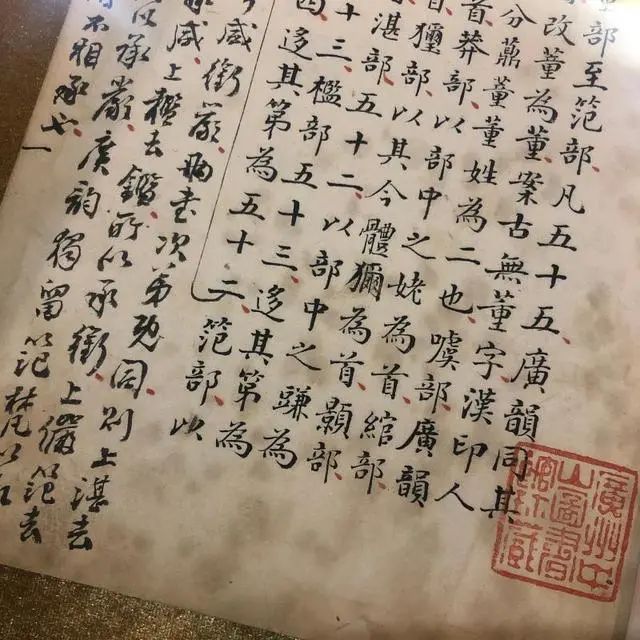 部至笵部凡五十五廣韻同其
改董為董案古無董字漢印人
分董董姓為二也噳部廣韻
首莽部以部中之姥為首綰部
獮部以其今體獮為首顥部
湛部五十二以部中之豏為
十三檻部五十三迻其第為
四迻其第為五十二笵部以
咸銜嚴書次第既同則上湛去
承咸上檻去鑑所以承銜上儼笵去
以承嚴廣韵獨留笵梵以
不相承也
廣州中
山圖書
館所藏